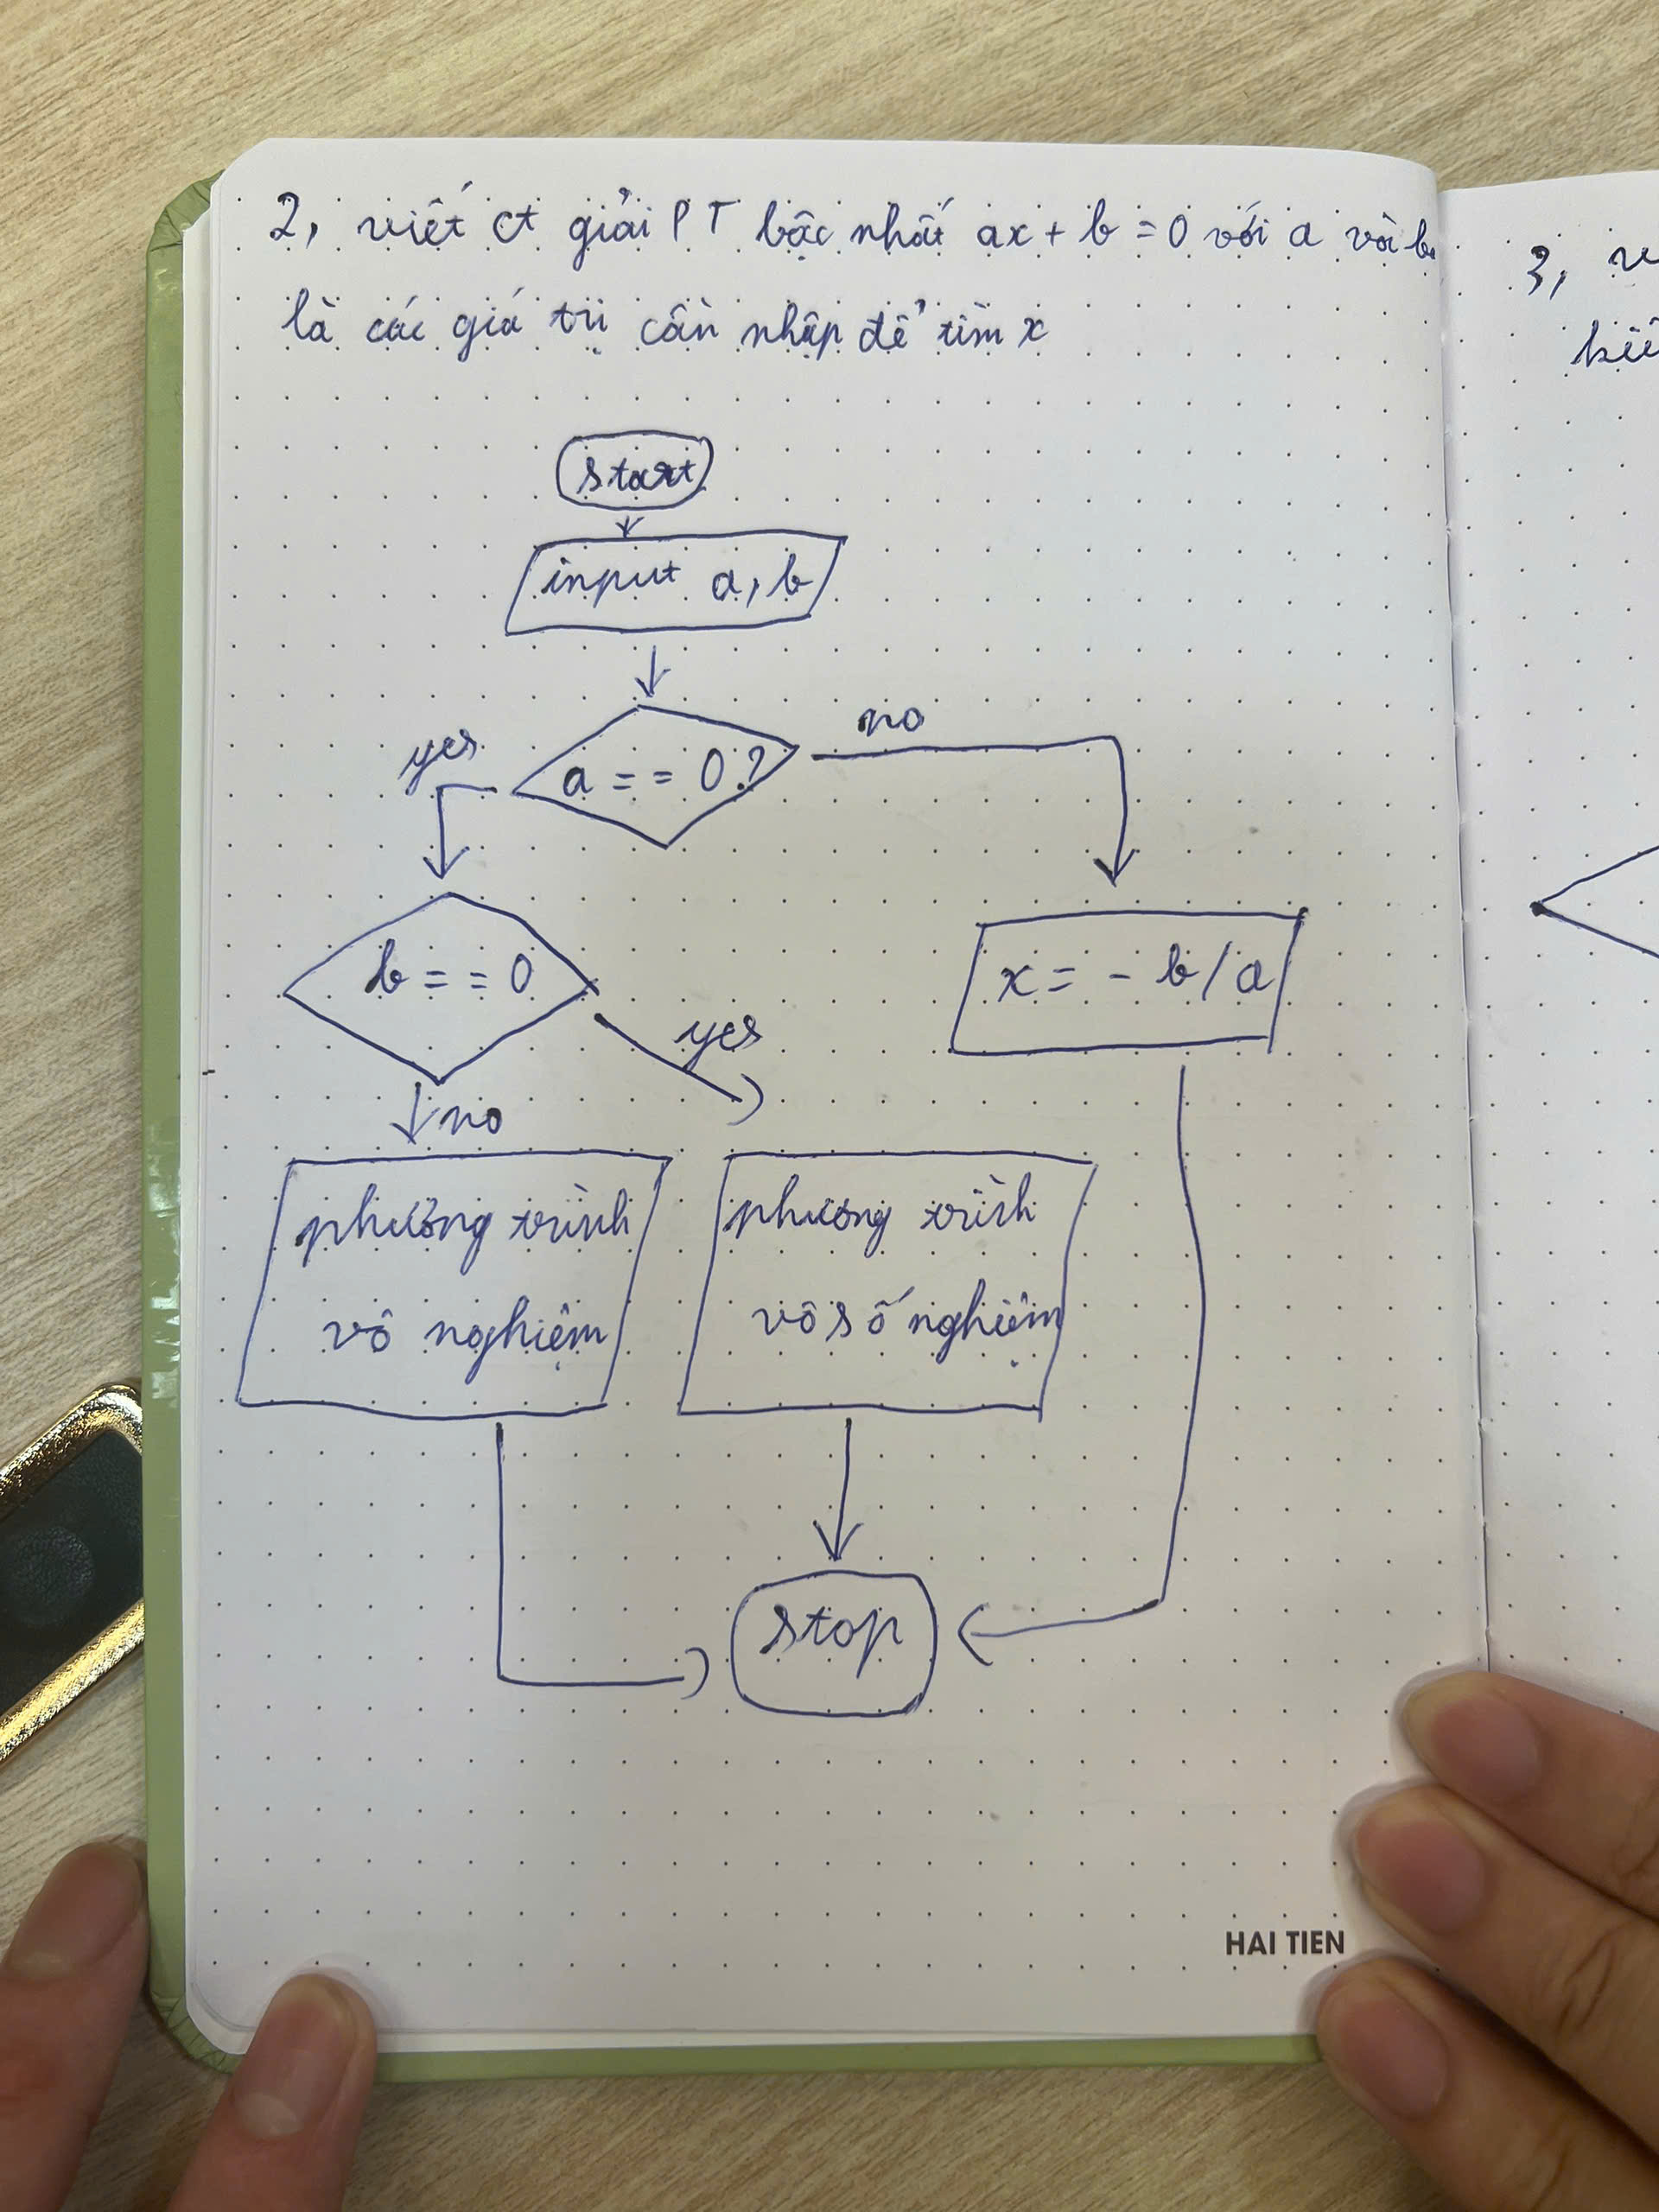 2, viết ct giải PT bậc nhất ax + b = 0 với a và b
là các giá trị cần nhập để tìm x
3,
start
input a, b
yes
no
a == 0?
b == 0
x = - b/a
yes
no
phương trình
vô nghiệm
phương trình
vô số nghiệm
stop
HAI TIEN